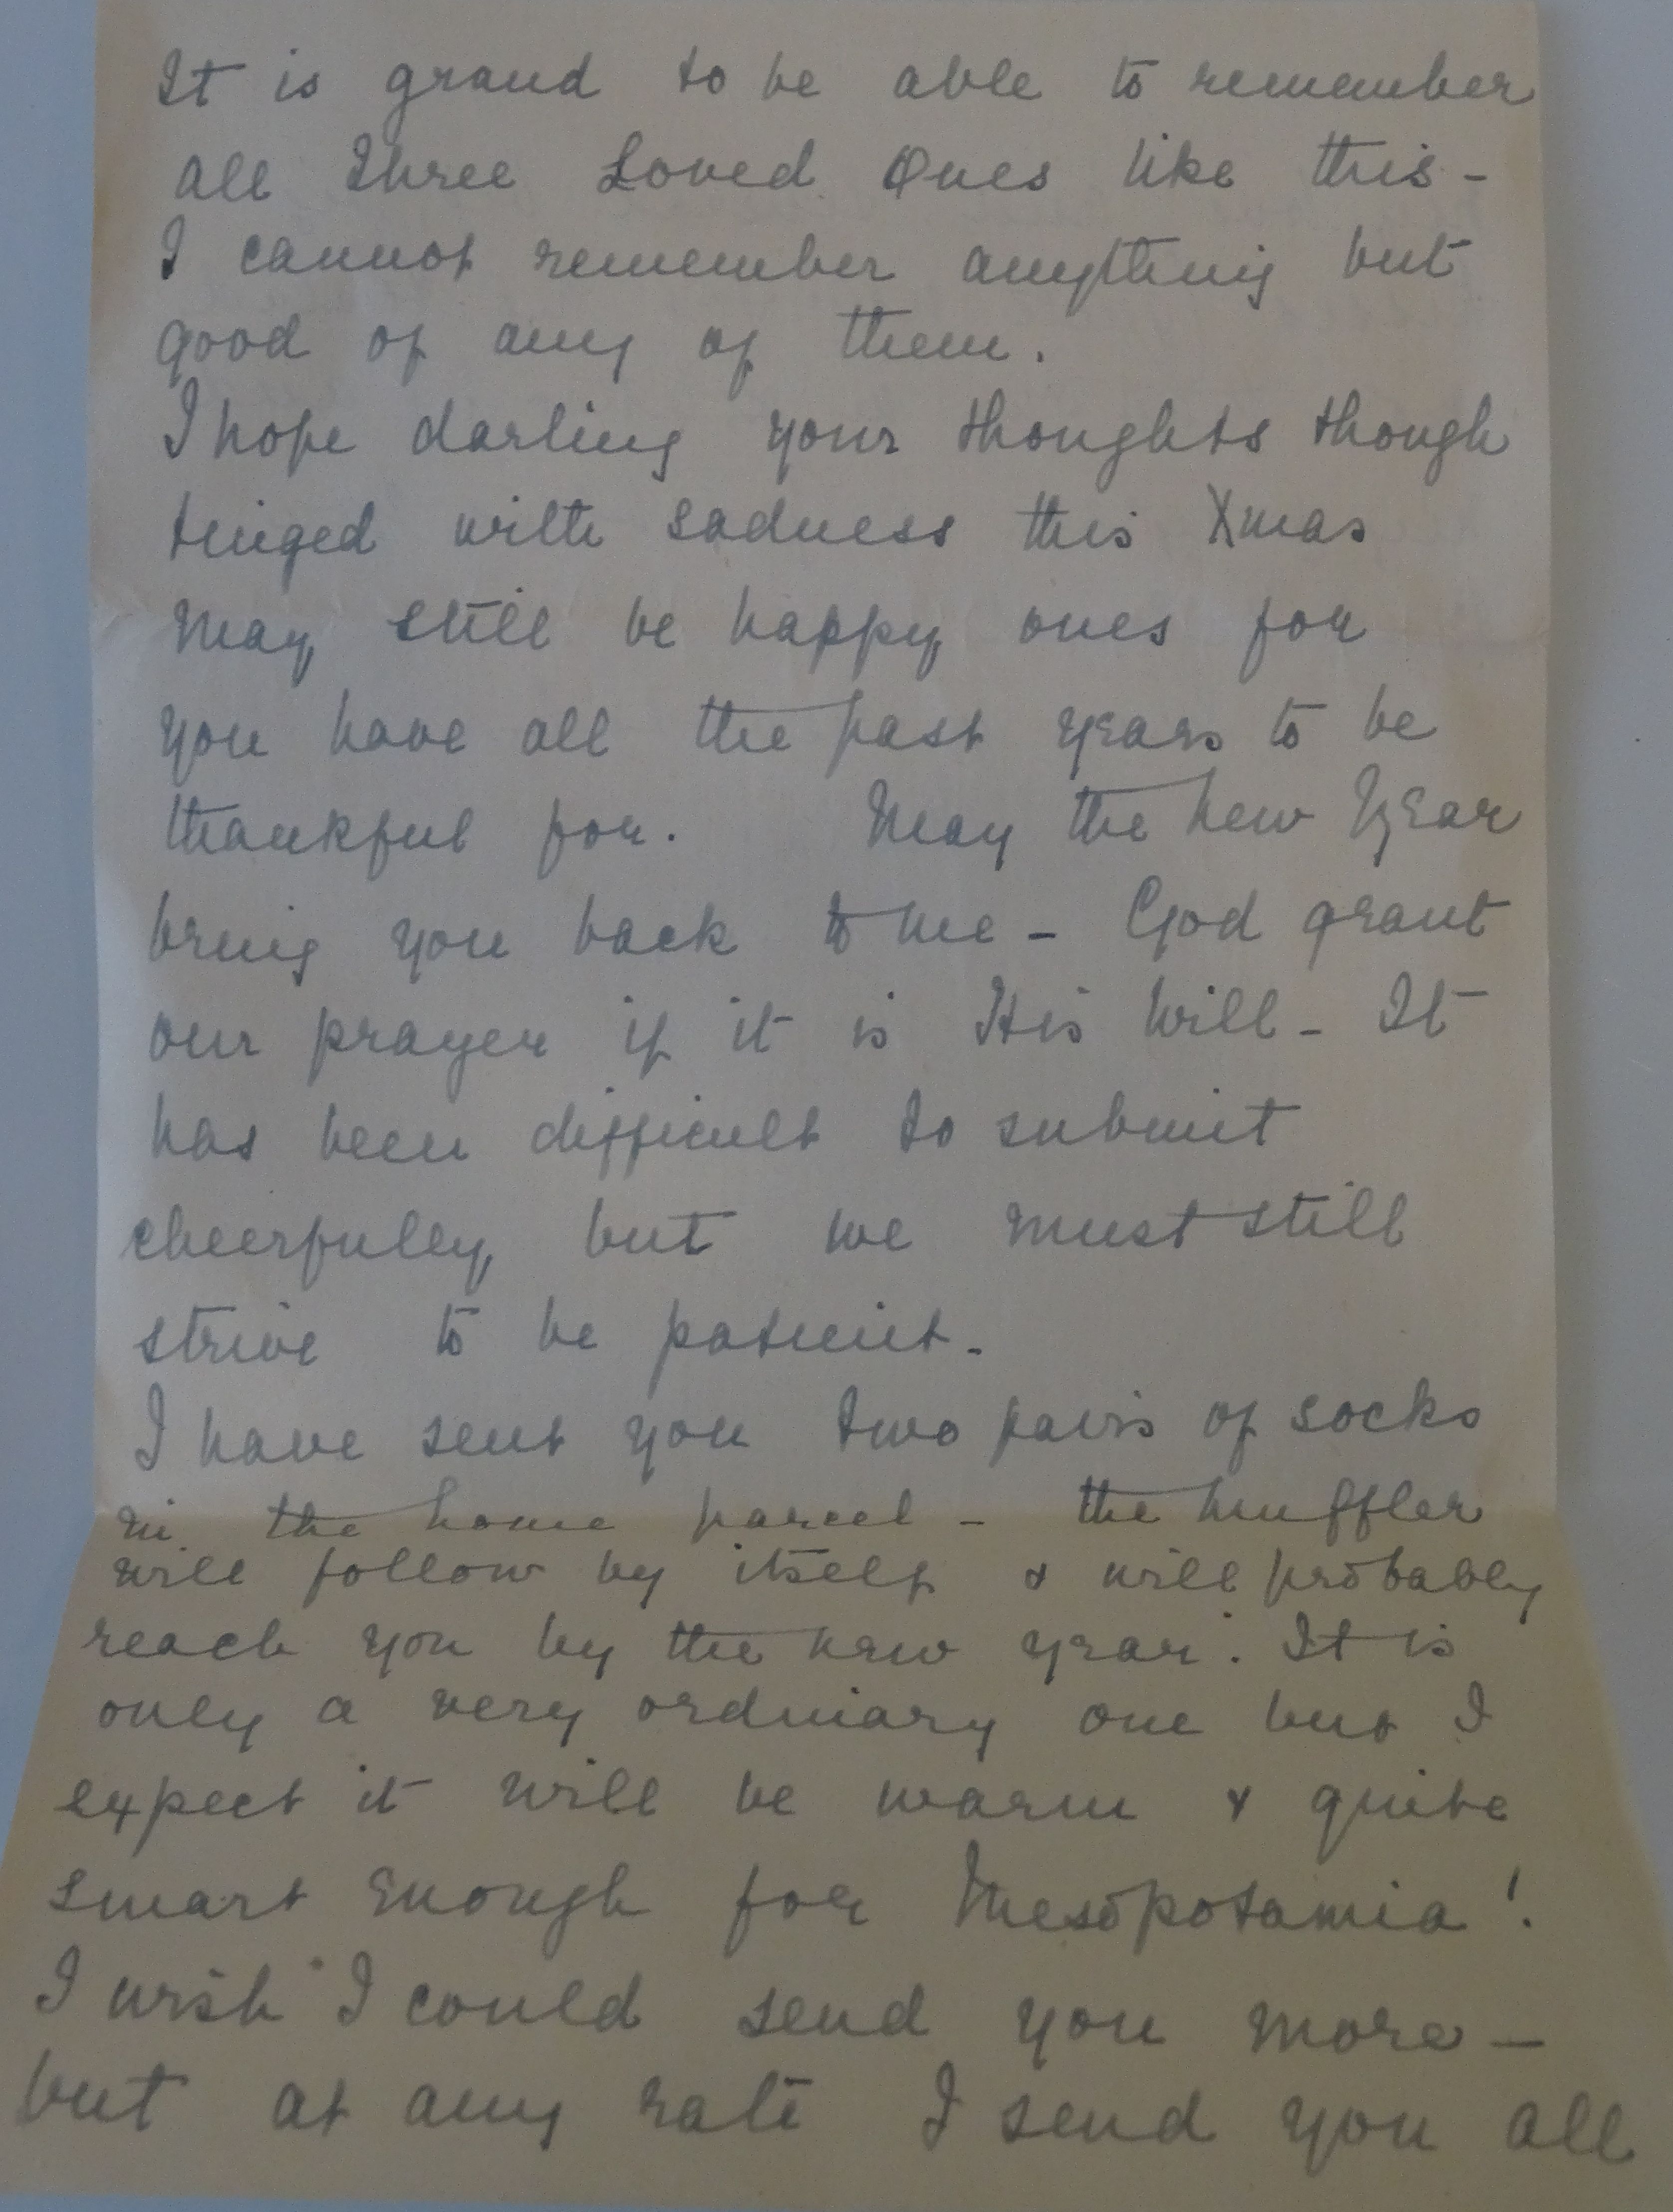 It is grand to be able to remember
all three Loved Ones like this -
I cannot remember anything but
good of any of them.
I hope darling your thoughts though
tinged with sadness this Xmas
may still be happy ones for
you have all the past years to be
thankful for. May the new Year
bring you back to me - God grant
our prayer if it is His Will - It
has been difficult to submit
cheerfully, but we must still
strive to be patient -
I have sent you two pairs of socks
in the home parcel - the muffler
will follow by itself & will probably
reach you by the new year. It is
only a very ordinary one but I
expect it will be warm & quite
smart enough for Mesopotamia !
I wish I could send you more -
but at any rate I send you all